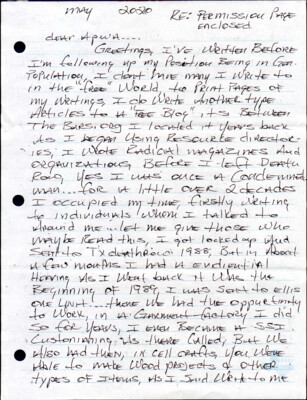 MAY 2020 RE: PERMISSION PAGE
ENCLOSED
dear APWA....
Greetings, I've Written Before
I'm following up my Position Being in Gen.
Population, I don't have many I Write to
in the "free" World, to Print Pages of
my Writings, I do Write another type
Articles to A "Free Blog", it's Between
The Bars.org I located it years back
As I began doing Resource director
ies, I wrote Radical magazines And
organizations, Before I left Death
Row, Yes I was once A Condemned
man... for A little over 2 decades
I occupied my time, firstly writing
to individuals whom I talked to
Around me... let me give those who
maybe Read this, I got locked up And
sent to Tx deathrow 1988, But in About
A few months I had A evidential
Hearing. As I Went back it was the
Beginning of 1989, I was sent to ellis
one Unit... there we had the opportunity
to Work, in A Garment factory I did
so for years, I even Became A SSI.
Custonianing. As there Called, But We
Also had then, in cell crafts, You were
Able to make Wood projects & other
types of Items, As I said Write to me